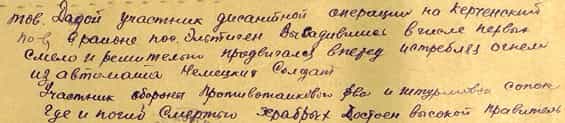 тов. Дадой участник дисантной операции на Керченский
по-в, в районе пос. Эльтиген высадившись в числе первых
смело и решительно продвигался вперед истребляя огнем
из автомата Немецких Солдат
Участник обороны Противотанкового рва и штурмовке сопок
Где и погиб Смертью храбрых Достоен высокой Правитель